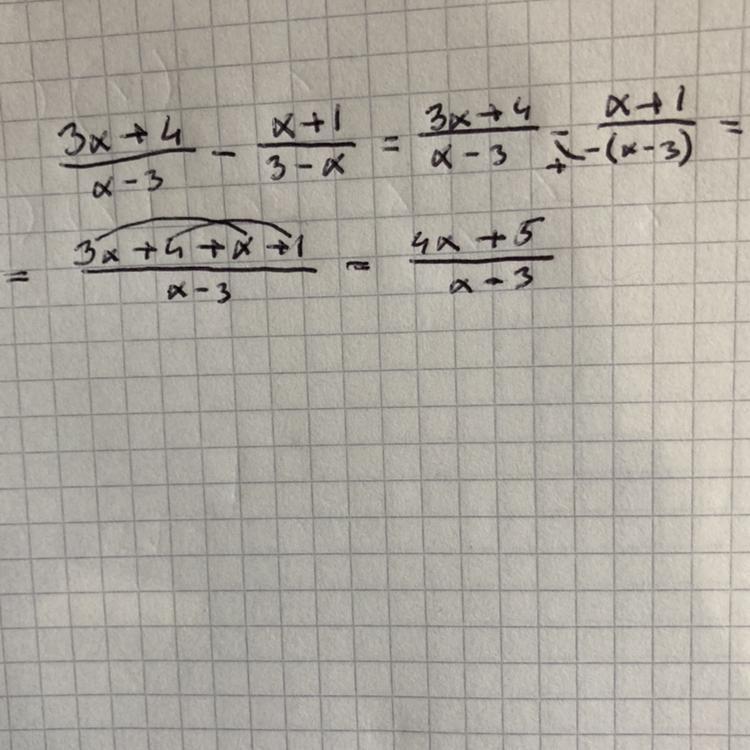 (3x+4)/(x-3) - (x+1)/(3-x) = (3x+4)/(x-3) - + (x+1)/(-(x-3)) =
= (3x+4+x+1)/(x-3) = (4x+5)/(x-3)